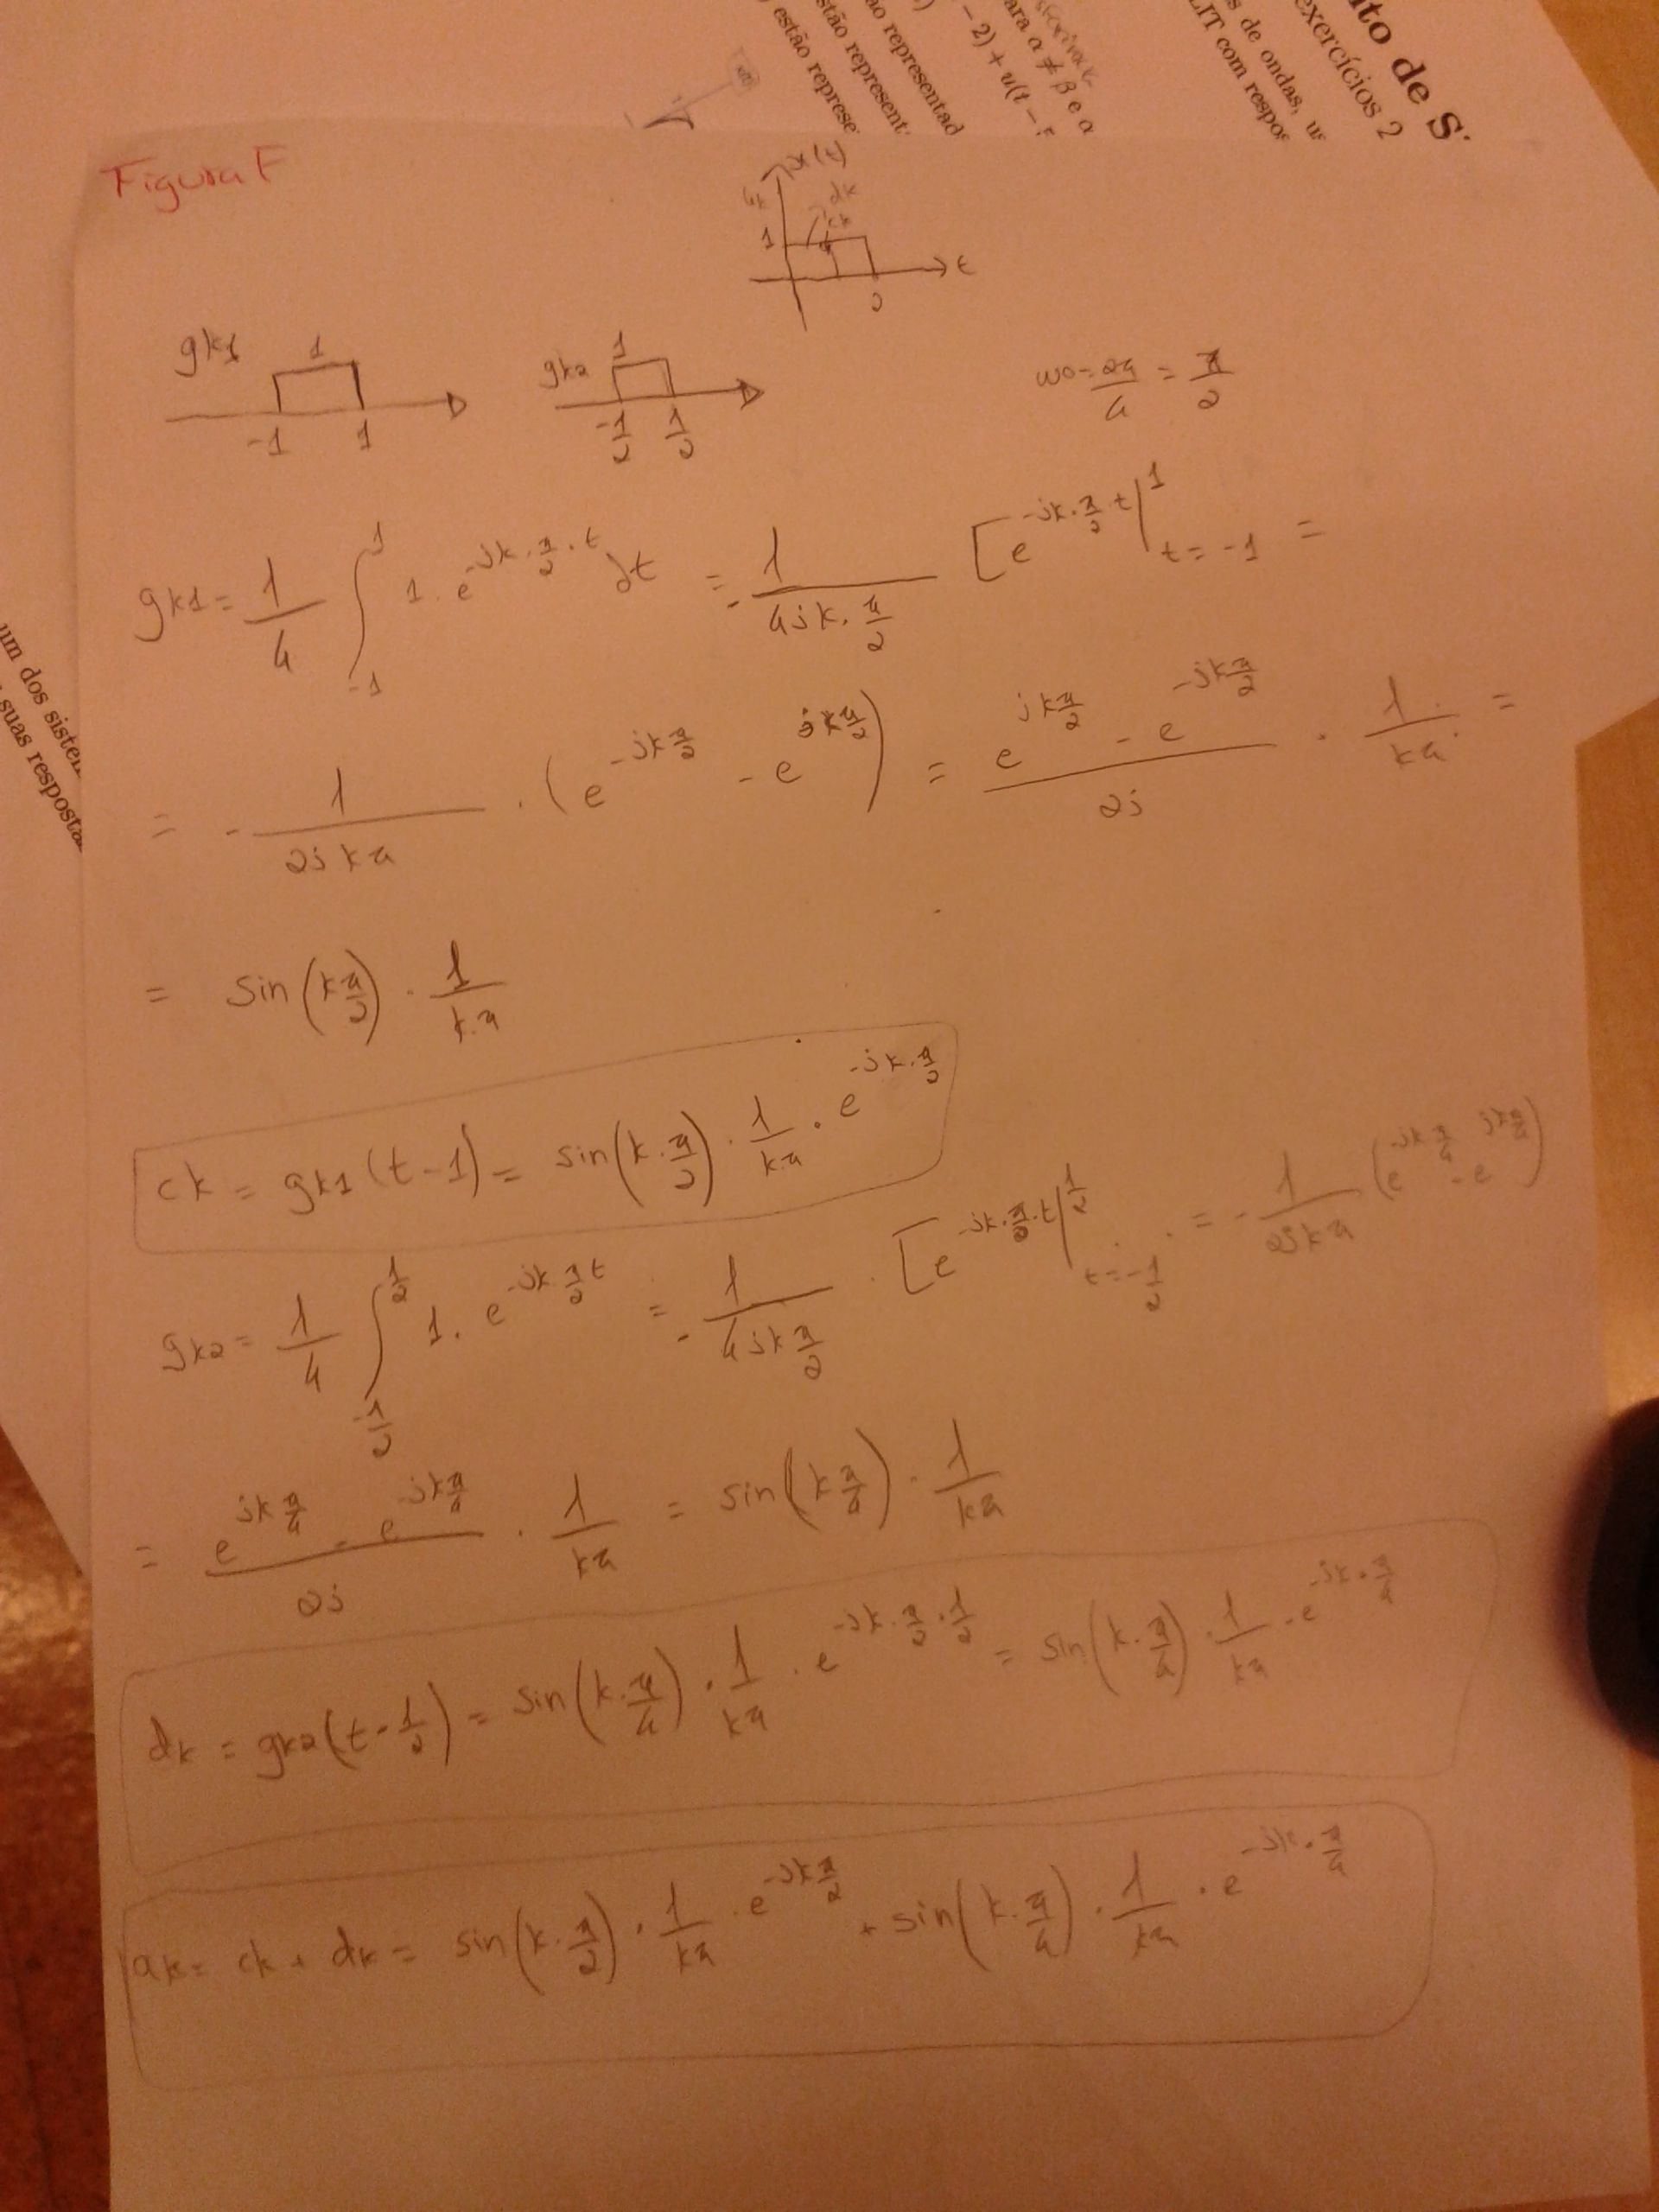 ito de S
exercícios 2
s de ondas, us
LIT com respos
ara α ≠ β e α
- 2) + u(t -
ão representad
stão represent
) estão represe
um dos sistem
suas resposta
Figura F
x(t)
1
t
2
gk1
1
-1 1
gk2
1
-1/2 1/2
wo = 2π/4 = π/2
gk1 = 1/4 ∫_{-1}^{1} 1 · e^{-jk·π/2·t} dt = -1/(4jk·π/2) [e^{-jk·π/2·t} |_{t=-1}^{1} =
= -1/(2jkπ) · (e^{-jkπ/2} - e^{jkπ/2}) = (e^{jkπ/2} - e^{-jkπ/2})/2j · 1/kπ =
= sin(kπ/2) · 1/kπ
ck = gk1(t-1) = sin(k·π/2) · 1/kπ · e^{-jk·π/2}
gk2 = 1/4 ∫_{-1/2}^{1/2} 1 · e^{-jk·π/2 t} = -1/(4jkπ/2) · [e^{-jk·π/2·t} |_{t=-1/2}^{1/2} = -1/(2jkπ) (e^{-jkπ/4} - e^{jkπ/4})
= (e^{jkπ/4} - e^{-jkπ/4})/2j · 1/kπ = sin(kπ/4) · 1/kπ
dk = gk2(t-1/2) = sin(k·π/4) · 1/kπ · e^{-jk·π/2·1/2} = sin(k·π/4) · 1/kπ · e^{-jk·π/4}
ak = ck + dk = sin(k·π/2) · 1/kπ · e^{-jkπ/2} + sin(k·π/4) · 1/kπ · e^{-jk·π/4}